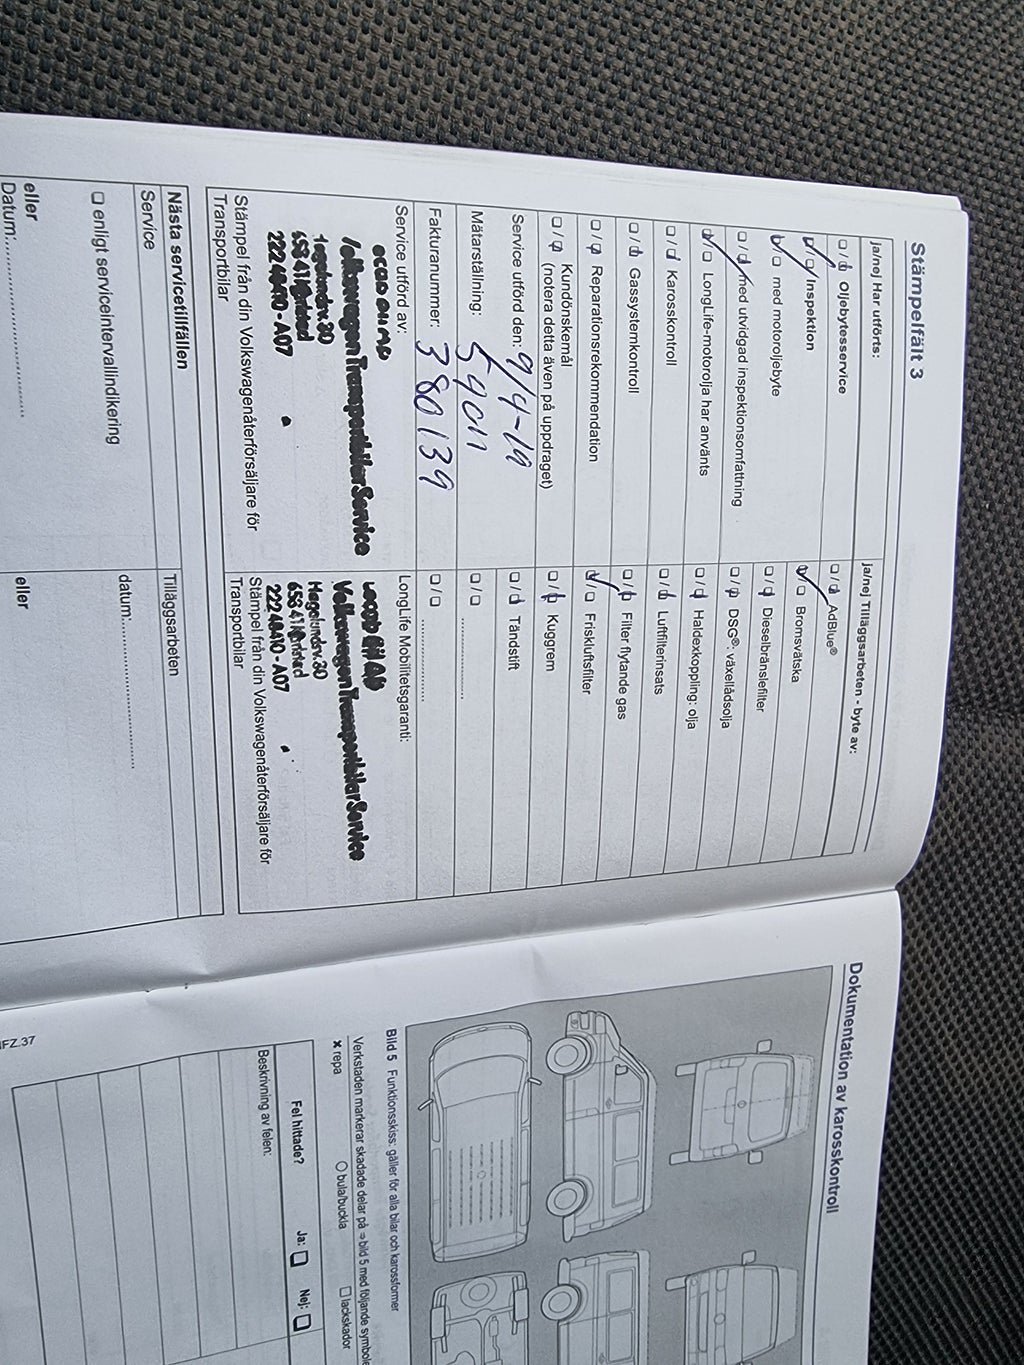 Stämpelfält 3
ja/nej Har utförts:
❑ / ❑ Oljebytesservice
❑ / ❑ Inspektion
❑ / ❑ med motoroljebyte
❑ / ❑ med utvidgad inspektionsomfattning
❑ / ❑ LongLife-motorolja har använts
❑ / ❑ Karosskontroll
❑ / ❑ Gassystemkontroll
❑ / ❑ Reparationsrekommendation
❑ / ❑ Kundönskemål
(notera detta även på uppdraget)
Service utförd den: 9/4-19
Mätarställning:
Fakturanummer: 380139
Service utförd av:
Volkswagen Transportbilar Service
222 48410 - A07
Stämpel från din Volkswagenåterförsäljare för
Transportbilar
ja/nej Tilläggsarbeten - byte av:
❑ / ❑ AdBlue®
❑ / ❑ Bromsvätska
❑ / ❑ Dieselbränslefilter
❑ / ❑ DSG®: växellådsolja
❑ / ❑ Haldexkoppling: olja
❑ / ❑ Luftfilterinsats
❑ / ❑ Filter flytande gas
❑ / ❑ Friskluftsfilter
❑ / ❑ Kuggrem
❑ / ❑ Tändstift
❑ / ❑ ................
❑ / ❑ ................
LongLife Mobilitetsgaranti:
Volkswagen Transportbilar Service
222 48410 - A07
Stämpel från din Volkswagenåterförsäljare för
Transportbilar
Nästa servicetillfällen
Service
❑ enligt serviceintervallindikering
eller
Datum:................................
Tilläggsarbeten
datum:................................
eller
Dokumentation av karosskontroll
Bild 5 Funktionsskiss: gäller för alla bilar och karossformer
Verkstaden markerar skadade delar på ⇒ bild 5 med följande symbole
x repa
○ bula/buckla
❑ lackskador
Fel hittade?
Ja: ❑
Nej: ❑
Beskrivning av felen:
FZ.37